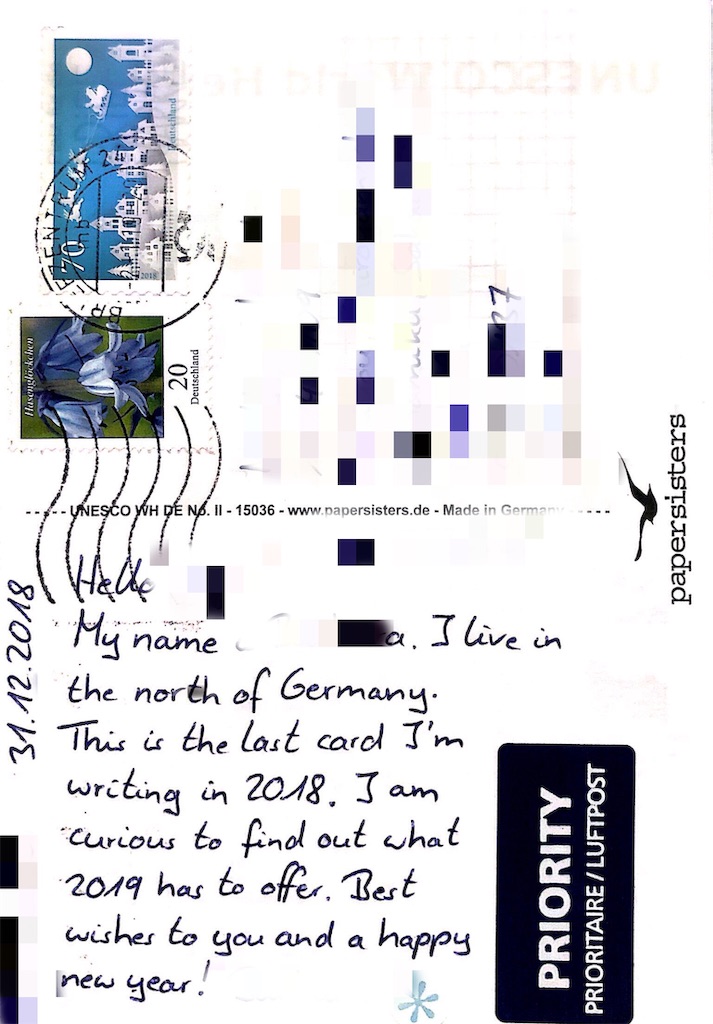 Deutschland
70
2018
Hasenglöckchen
20
Deutschland
37
UNESCO WH DE No. II - 15036 - www.papersisters.de - Made in Germany
papersisters
31.12.2018
Hello
My name a. I live in
the north of Germany.
This is the last card I'm
writing in 2018. I am
curious to find out what
2019 has to offer. Best
wishes to you and a happy
new year!
PRIORITY
PRIORITAIRE / LUFTPOST